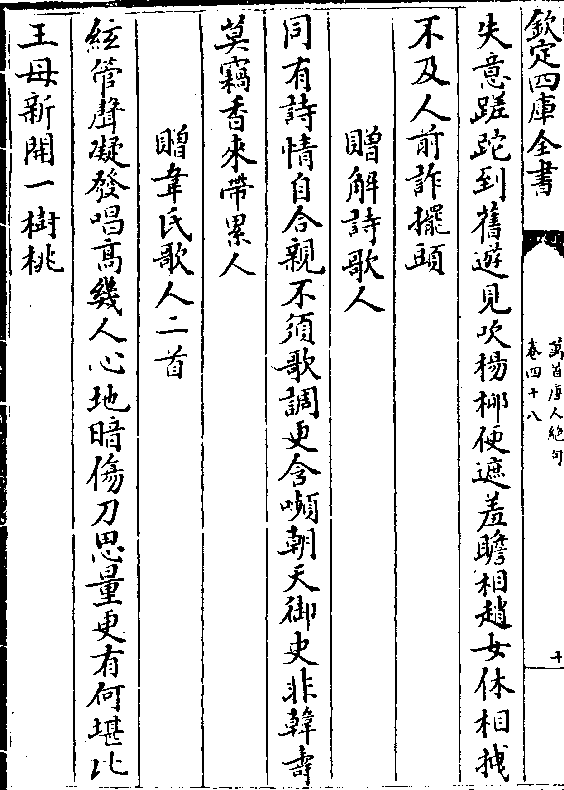 欽定四庫全書
萬首唐人絶句
卷四十八
十
失意蹉跎到舊遊見吹楊栁便遮羞瞻相趙女休相拽
不及人前詐擺頭
贈解詩歌人
同有詩情自合親不須歌調更含嚬朝天御史非韓壽
莫竊香來帶累人
贈韋氏歌人二首
絃管聲凝發唱髙幾人心地暗傷刀思量更有何堪比
王母新開一樹桃